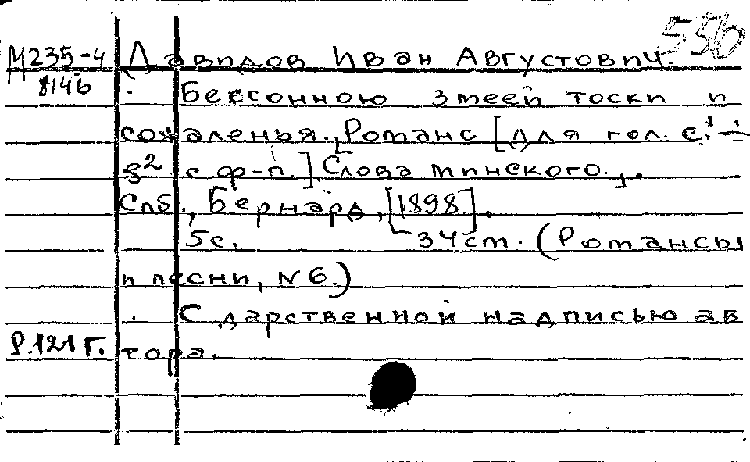 556
М235-4 Давидов Иван Августович.
8146
Бессонною змеей тоски и
сожаленья. Романс [для гол. с¹ –
g² с ф-п.] Слова Минского.
Спб., Бернард, [1898].
5с. 34см. (Романсы
и песни, №6.)
С дарственной надписью ав
Р.121г. тора.